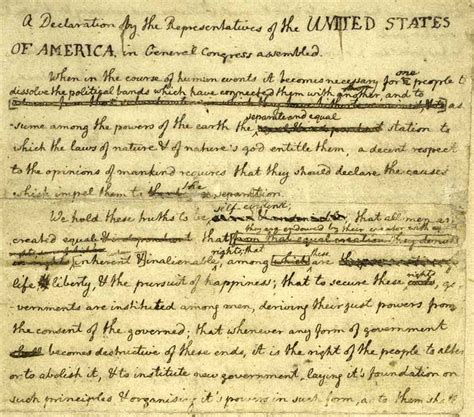 A Declaration by the Representatives of the UNITED STATES
OF AMERICA, in General Congress assembled.
When in the course of human events it becomes necessary for one people to
dissolve the political bands which have connected them with another, and to as-
separate and equal
sume among the powers of the earth the station to
which the laws of nature & of nature's god entitle them, a decent respect
to the opinions of mankind requires that they should declare the causes
which impel them to the separation.
self-evident;
We hold these truths to be that all men are
they are endowed by their creator with
created equal that from that equal creation they derive
rights; that these
rights inherent & inalienable, among which are the
rights
life, liberty, & the pursuit of happiness; that to secure these ends, go-
vernments are instituted among men, deriving their just powers from
the consent of the governed; that whenever any form of government
shall becomes destructive of these ends, it is the right of the people to alter
or to abolish it, & to institute new government, laying it's foundation on
such principles & organising it's powers in such form, as to them shall